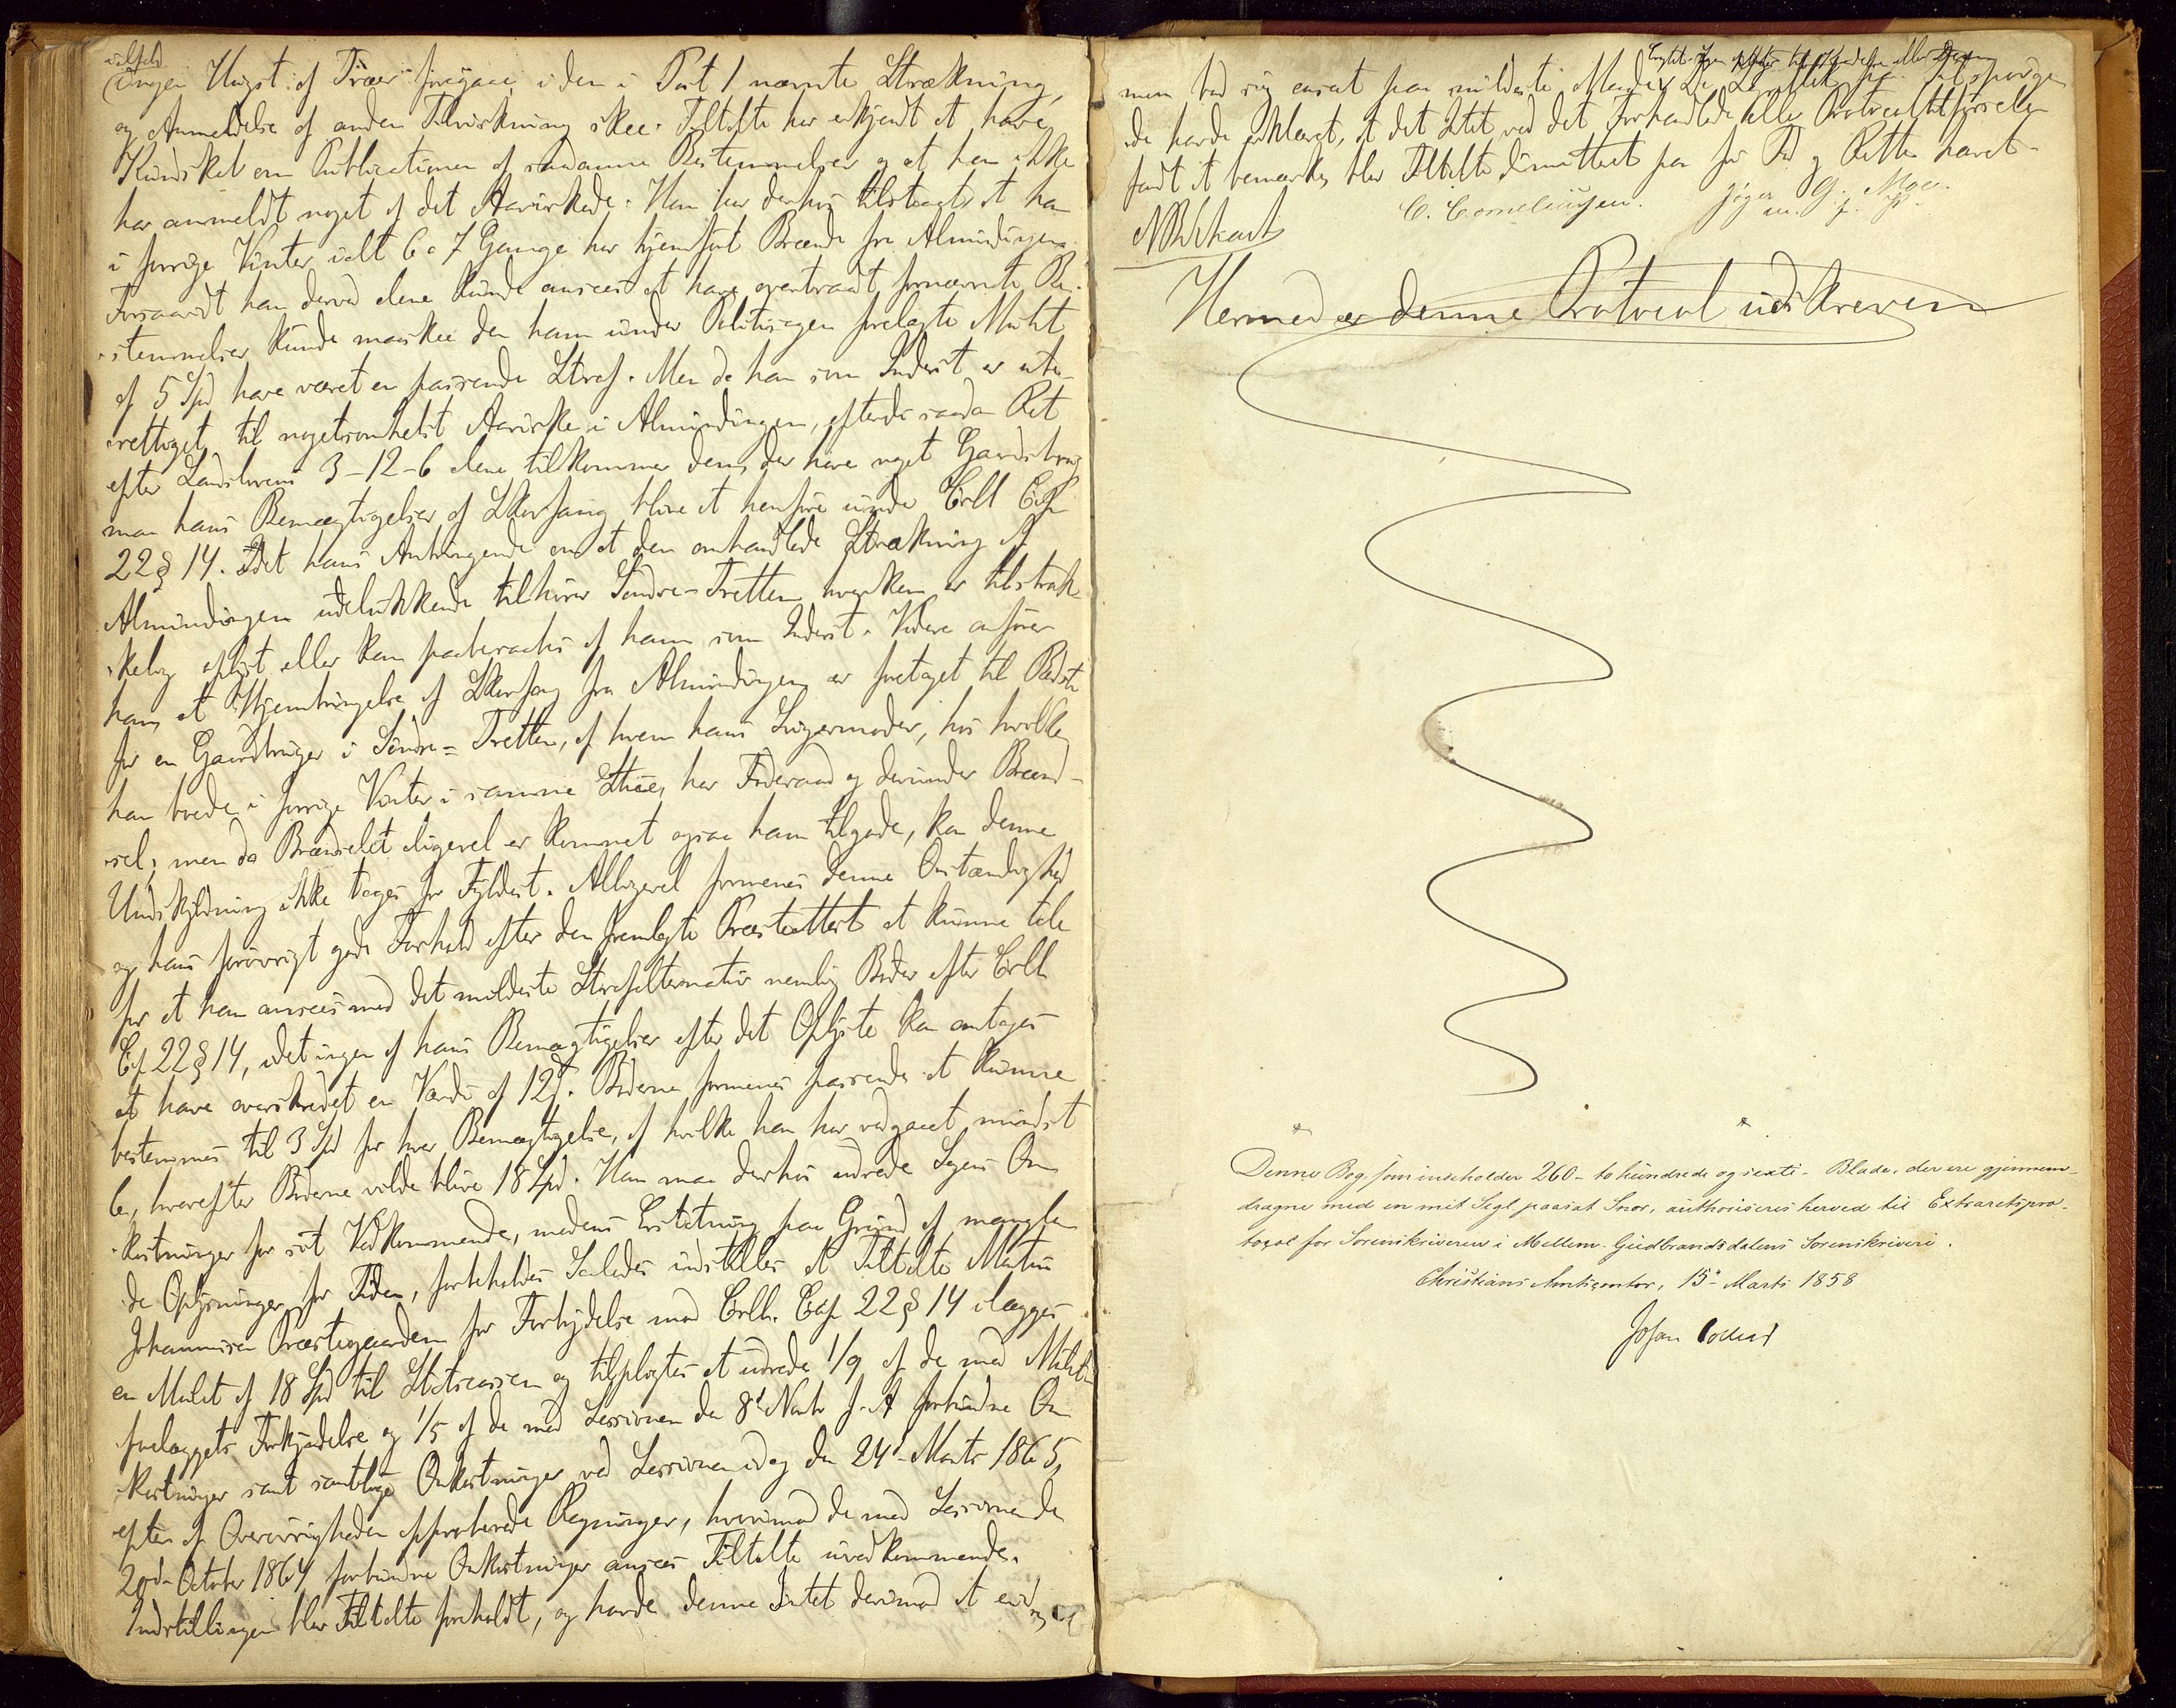 ingen Hugst af Træer foregaae i den i Post 1 nævnte Strækning,
og Anmeldelse af anden Tilvirkning skee. Tiltalte har erkjendt at have
Kundskab om Publicationen af saadanne Bestemmelser og at han ikke
har anmeldt noget af det Avirkede. Han har derhos tilstaaet, at han
i forrige Vinter ialt 6 a 7 Gange har hjemført Brænde fra Almindingen.
Forsaavidt han derved alene kunde ansees at have overtraadt fornævnte Be-
stemmelser kunde maaskee den ham under Politisagen forelagte Mulkt
af 5 Spd have været en passende Straf. Men da han som Inderst er ube-
rettiget til nogetsomhelst Avirke i Almindingen, efterdi saadan Ret
efter Landslovens 3-12-6 alene tilkommer dem, der have noget Gaardsbrug
maa hans Bemægtigelser af Skovfang blive at henføre under Crll Cap
22 § 14. Idet hans Anbringende om at den omhandlede Strækning af
Almindingen udelukkende tilhører Søndre-Tretten hverken er tilstræk-
kelig oplyst eller kan paaberaabes af ham som Inderst. Videre anfører
han, at Hjembringelse af Skovfang fra Almindingen er foretaget til Bedste
for en Gaardbruger i Søndre-Tretten, af hvem hans Svigermoder, hos hvilken
han boede i forrige Vinter i samme Stue, har Føderaad og derunder Brænd-
sel; men da Brændselet aligevel er kommet ogsaa ham tilgode, kan denne
Undskyldning ikke tages for Fyldest. Alligevel formenes denne Omstændighed
og hans forøvrigt gode Forhold efter den fremlagte Præsteattest at kunne tale
for at han ansees med det mildeste Strafalternativ nemlig Bøder efter Crll
Cap 22 § 14, idet ingen af hans Bemægtigelser efter det Oplyste kan antages
at have overskredet en Værdi af 12 ſ. Bøderne formenes passende at kunne
bestemmes til 3 Spd for hver Bemægtigelse, af hvilke han har vedgaaet mindst
6, hvorefter Bøderne vilde blive 18 Spd. Han maa derhos udrede Sagens Om-
kostninger for sit Vedkommende, medens Erstatning paa Grund af manglen-
de Oplysninger for Tiden, forbeholdes. Saaledes indstilles at Tiltalte Martin
Johannesen Præstegaarden for Forbrydelse mod Crll. Cap 22 § 14 ilægges
en Mulct af 18 Spd til Statscassen og tilpligtes at udrede 1/9 af de med Mulct-
forelæggets Forkyndelse og 1/5 af de med Sessionen den 8de Novbr f. A. forbundne Om-
kostninger samt samtlige Omkostninger ved Sessionen idag den 24de Marts 1865,
efter af Overøvrigheden approberede Regninger, hvorimod de med Sessionen den
20de October 1864 forbundne Omkostninger ansees Tiltalte uvedkommende.
Indstillingen blev Tiltalte foreholdt, og havde denne Intet derimod at erindre,
men bad sig anseet paa mildeste Maade. Da
de havde erklæret, at det Intet ved det Forhandlede eller Protocoltilførselen
fandt at bemærke, blev Tiltalte dimitteret paa fri Fod og Retten hævet.
C. Corneliussen. G. Moen
m. f. P.
Hermed er denne Protocol udskreven
Denne Bog, som indeholder 260 - to hundrede og sexti - Blade, der ere gjennem-
dragne med en mit Segl paasat Snor, authoriseres herved til Extraretspro-
tocol for Sorenskriveren i Mellem-Gudbrandsdalens Sorenskriveri.
Christians Amtscontor, 15de Marts 1858
Johan Collett